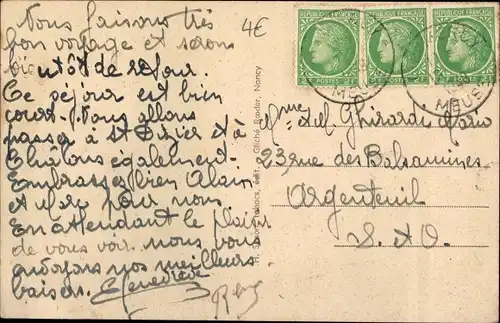 Nous faisons très
bon voyage et serons
bientôt de retour.
Ce séjour est bien
court. Nous allons
passer à St Dizier et à
Châlons également.
Embrassez bien Alain
et pour nous
En attendant le plaisir
de vous voir nous vous
envoyons nos meilleurs
baisers. Genevieve
4€
REPUBLIQUE FRANÇAISE REPUBLIQUE FRANÇAISE
POSTES 2F POSTES 2F
MEUSE
MEUSE
Tabacs, édit. Cliché Bader, Nancy
Mme et Mr Ghirardi
23 rue des Balsamines
Argenteuil
S. et O.